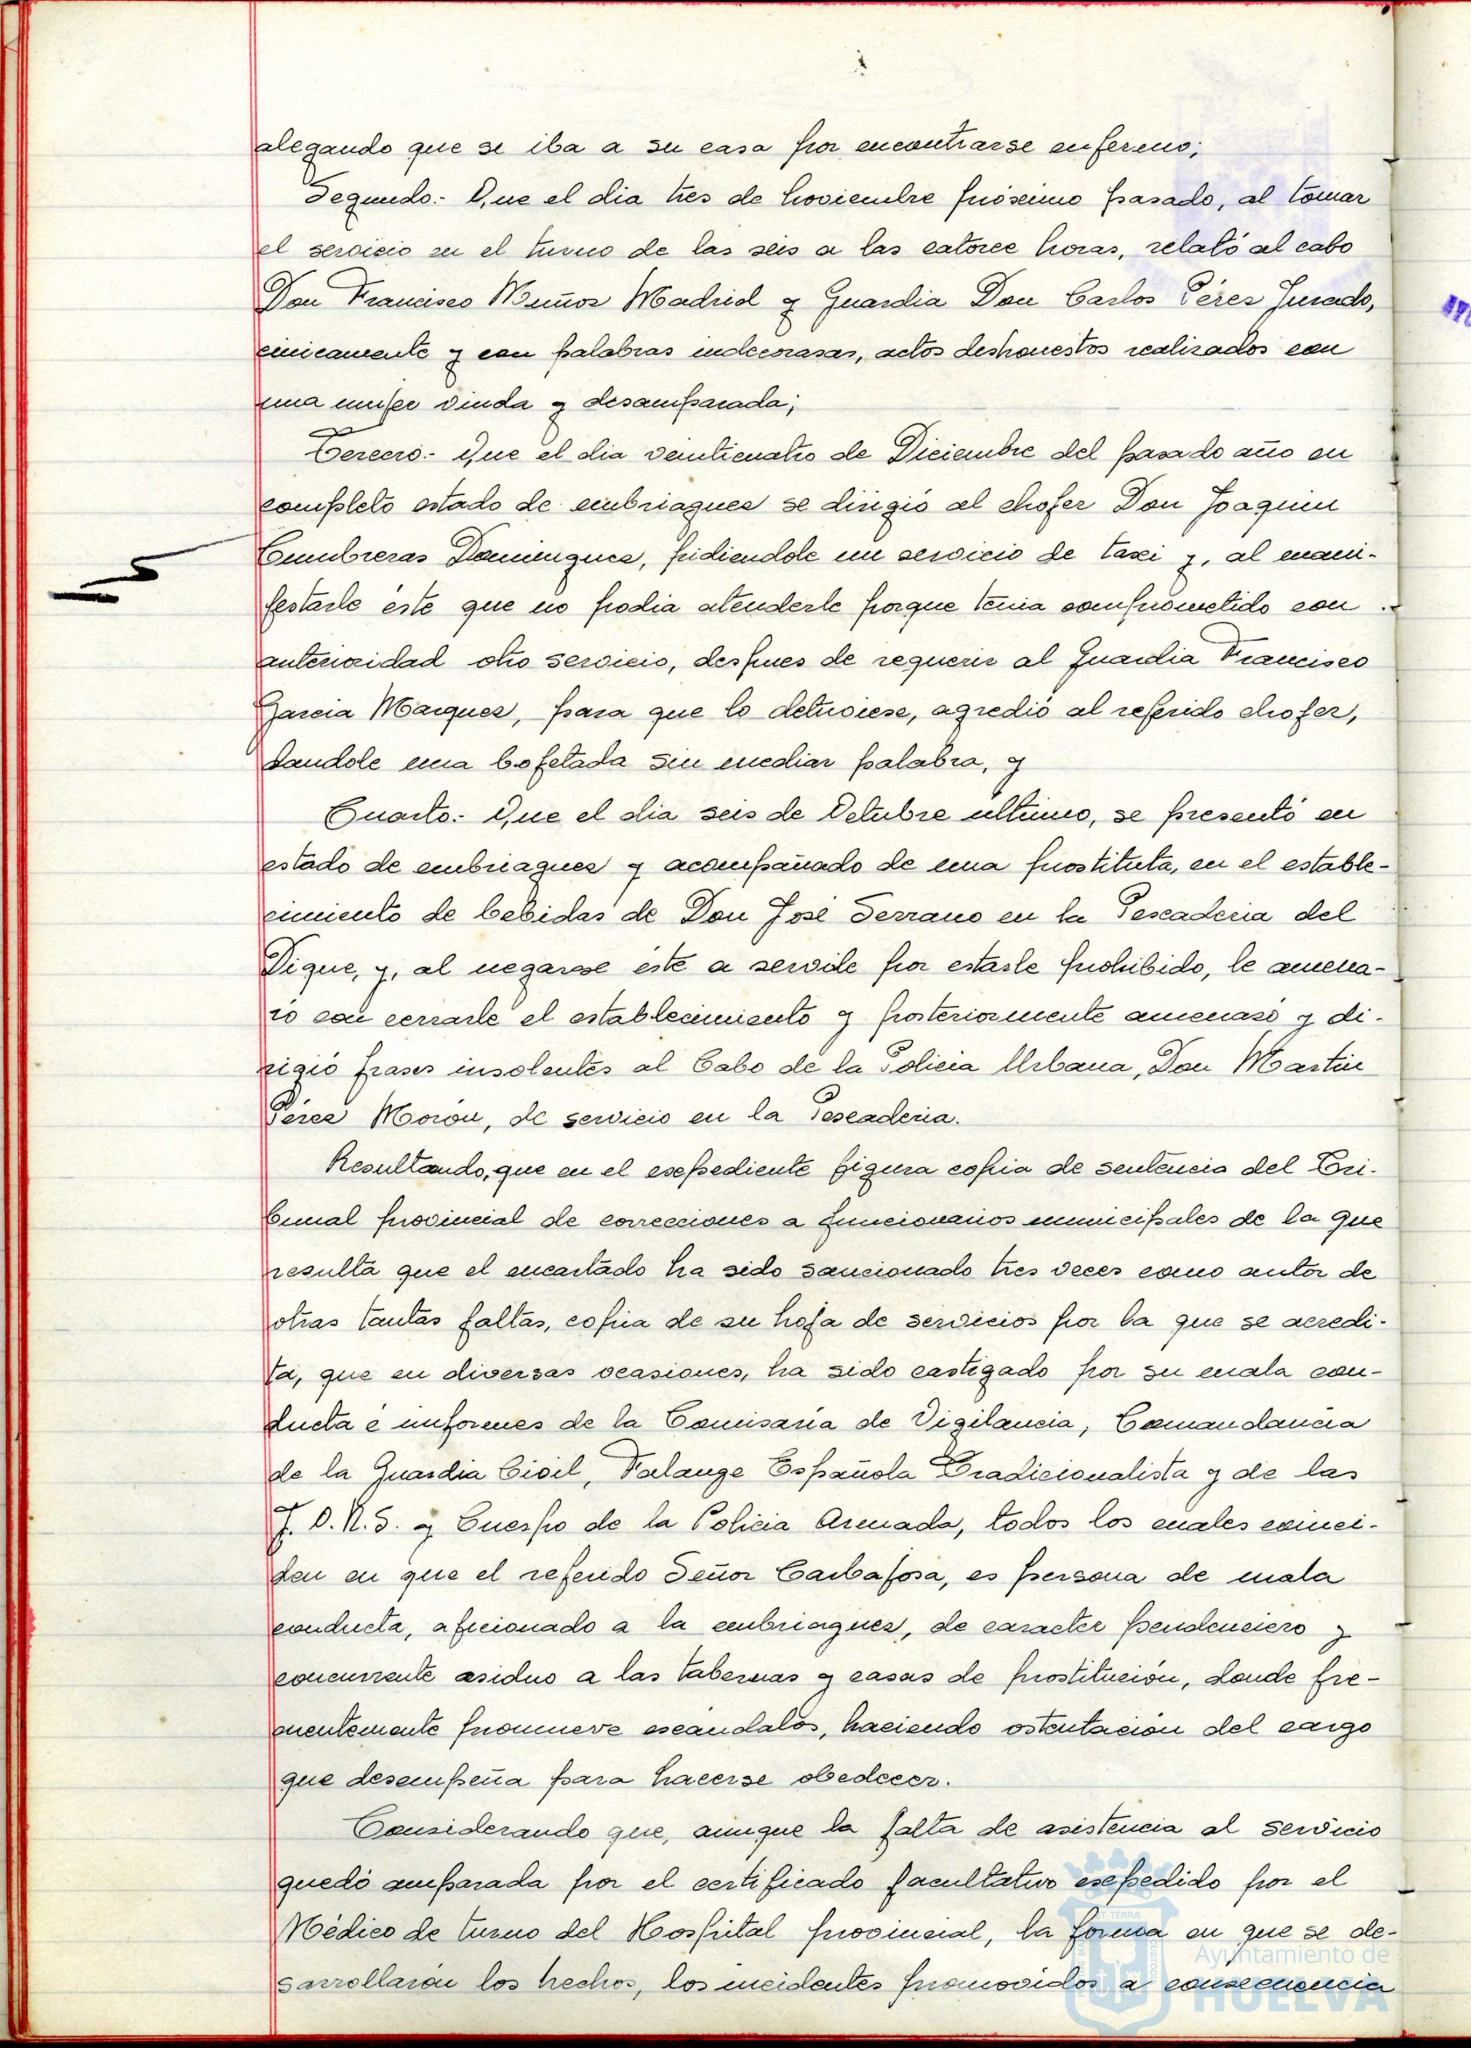 alegando que se iba a su casa por encontrarse enfermo;
Segundo.- Que el dia tres de Noviembre próximo pasado, al tomar
el servicio en el turno de las seis a las catorce horas, relató al cabo
Don Francisco Muñoz Madrid y Guardia Don Carlos Pérez Jurado,
cinicamente y con palabras indecorasas, actos deshonestos realizados con
una mujer viuda y desamparada;
Tercero.- Que el dia veinticuatro de Diciembre del pasado año en
completo estado de embriaguez se dirigió al chofer Don Joaquin
Cumbreras Dominguez, pidiendole un servicio de taxi y, al mani-
festarle éste que no podia atenderle porque tenia comprometido con
anterioridad otro servicio, despues de requerir al Guardia Francisco
Garcia Marquez, para que lo detuviese, agredió al referido chofer,
dandole una bofetada sin mediar palabra, y
Cuarto.- Que el dia seis de Octubre último, se presentó en
estado de embriaguez y acompañado de una prostituta, en el estable-
cimiento de bebidas de Don José Serrano en la Pescaderia del
Dique, y, al negarse éste a servile por estarle prohibido, le amena-
zó con cerrarle el establecimiento y posteriormente amenasó y di-
rigió frases insolentes al Cabo de la Policia Urbana, Don Martin
Pérez Morón, de servicio en la Pescaderia.
Resultando, que en el expediente figura copia de sentencia del Tri-
bunal provincial de correcciones a funcionarios municipales de la que
resulta que el encartado ha sido sancionado tres veces como autor de
otras tantas faltas, copia de su hoja de servicios por la que se acredi-
ta, que en diversas ocasiones, ha sido castigado por su mala con-
ducta é informes de la Comisaría de Vigilancia, Comandancia
de la Guardia Civil, Falange Española Tradicionalista y de las
J. O. N. S. y Cuerpo de la Policia Armada, todos los cuales coinci-
den en que el referido Señor Carbajosa, es persona de mala
conducta, aficionado a la embriaguez, de caracter pendenciero y
concurrente asiduo a las tabernas y casas de prostitución, donde fre-
cuentemente promueve escándalos, haciendo ostentación del cargo
que desempeña para hacerse obedecer.
Considerando que, aunque la falta de asistencia al servicio
quedó amparada por el certificado facultativo expedido por el
Médico de turno del Hospital provincial, la forma en que se de-
sarrollaron los hechos, los incidentes promovidos a consecuencia
Ayuntamiento de
HUELVA